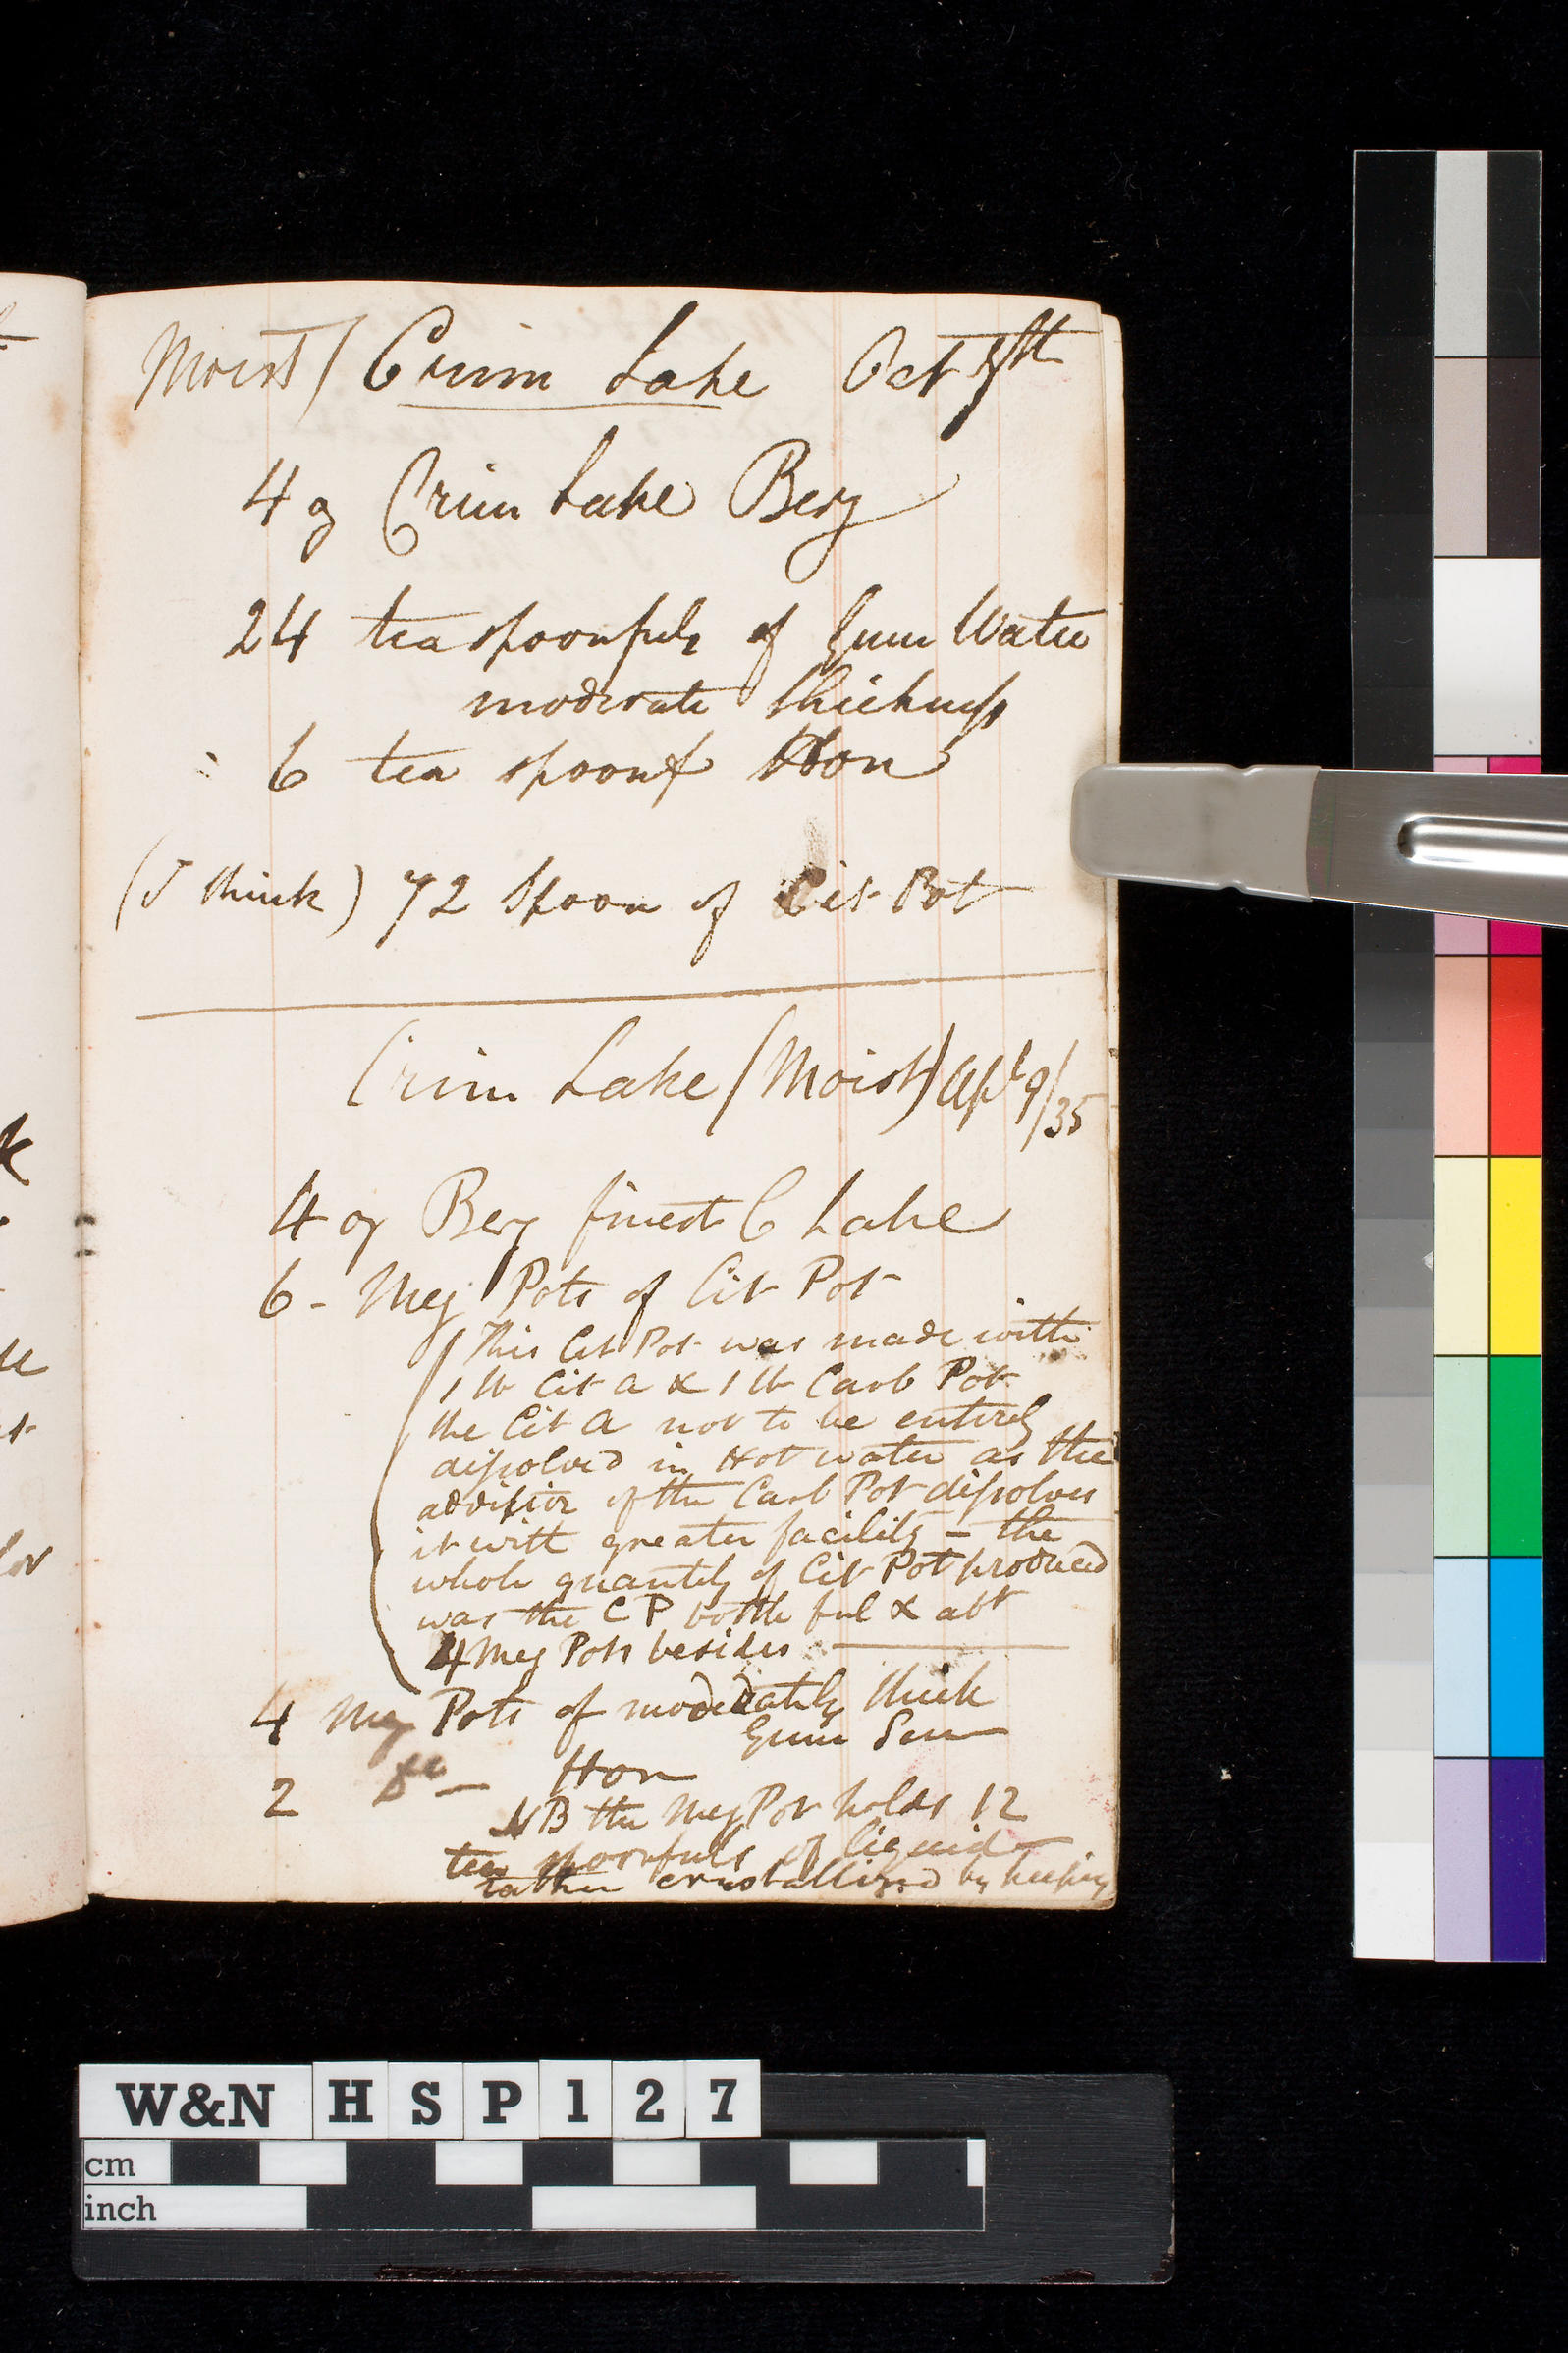 Moist / Crim Lake Oct 5th
4 oz Crim Lake Berg
24 teaspoonfuls of Gum Water
moderate thickness
6 tea spoonf Hon
(I think) 72 Spoon of Cit Pot
Crim Lake (Moist) Apl 9/35
4 oz Berg finest C Lake
6 - Meg Pots of Cit Pot
This Cit Pot was made with
1 lb Cit A & 1 lb Carb Pot
the Cit A not to be entirely
dissolved in Hot water as the
addition of the Carb Pot dissolves
it with greater facility - the
whole quantity of Cit Pot produced
was the C P bottle ful & abt
4 Meg Pots besides
4 Meg Pots of moderately thick
Gum Sen
2 Do - Hon
NB the Meg Pot holds 12
tea spoonfuls of liquid
rather crystallized by keeping
W&N HSP127
cm
inch